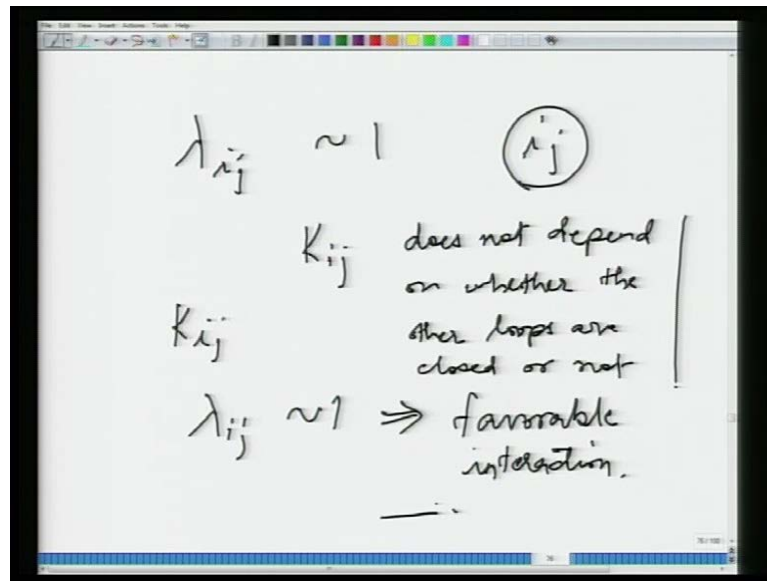 File Edit View Insert Actions Tools Help
λij ~ 1 ij
Kij does not depend
on whether the
Kij other loops are
closed or not
λij ~ 1 ⇒ favorable
interaction.
76/100
76